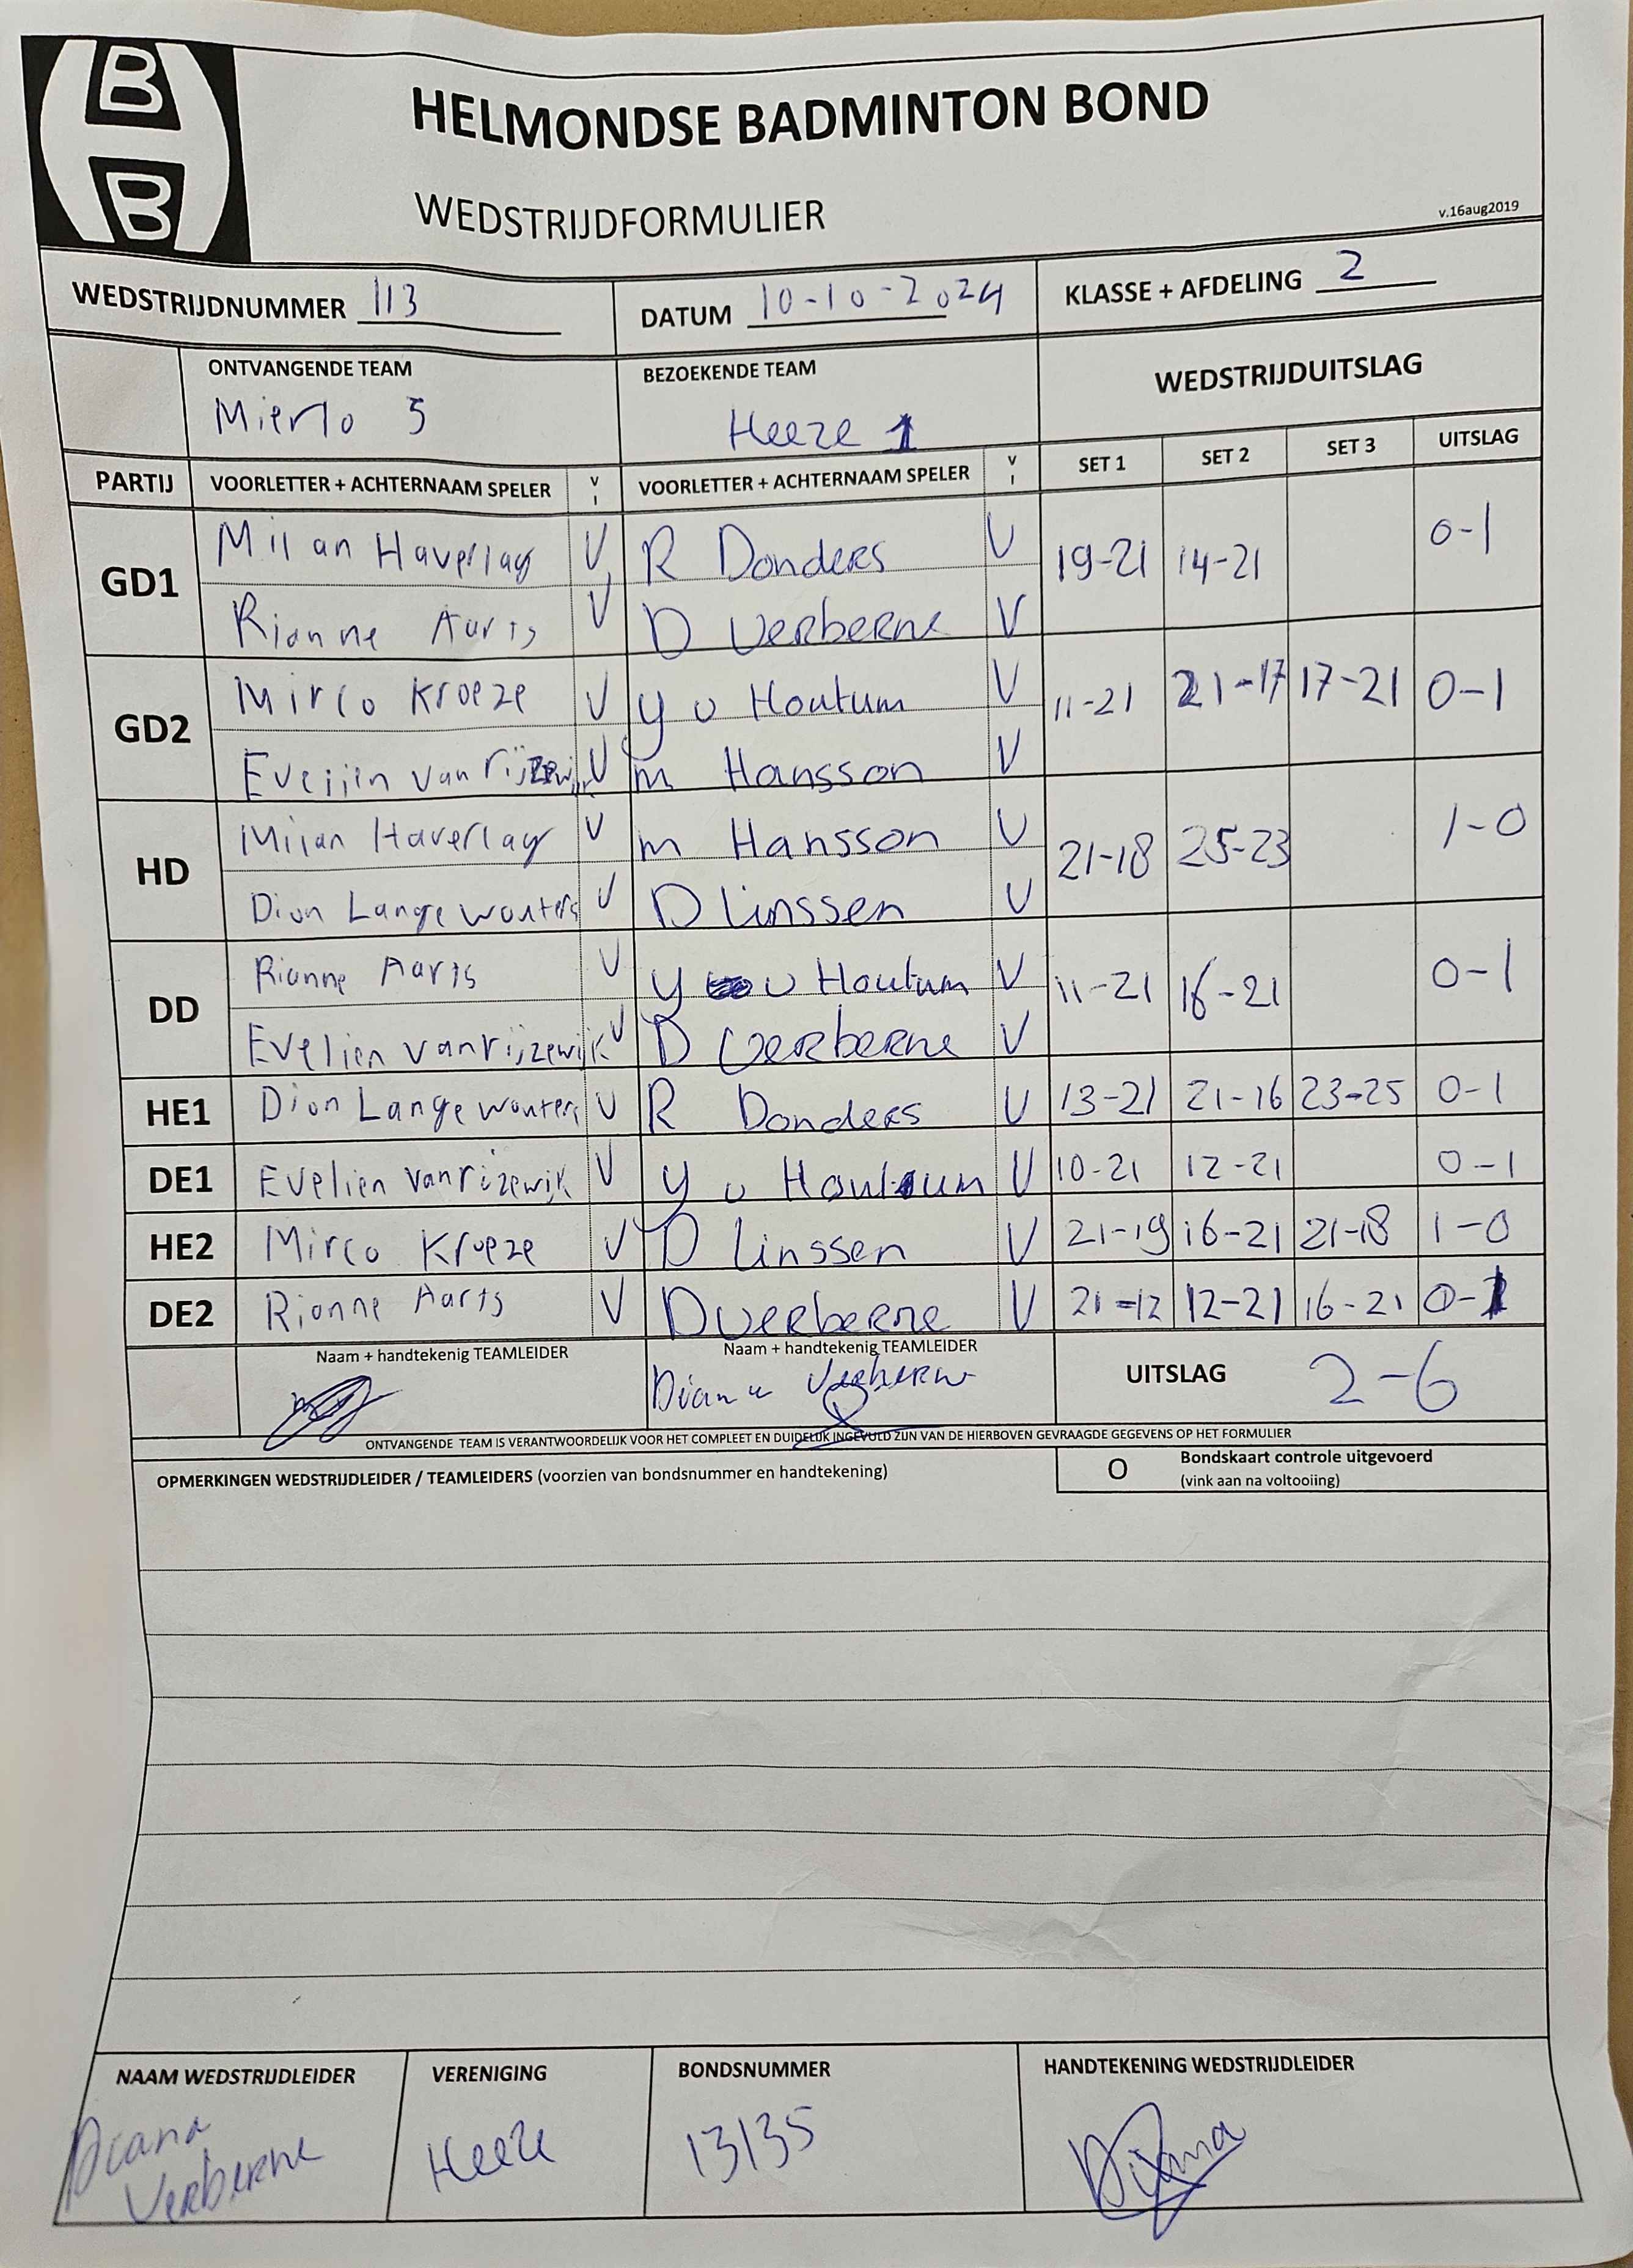 B
B
HELMONDSE BADMINTON BOND
WEDSTRIJDFORMULIER
v.16aug2019
WEDSTRIJDNUMMER 113 DATUM 10-10-2024 KLASSE + AFDELING 2
ONTVANGENDE TEAM BEZOEKENDE TEAM WEDSTRIJDUITSLAG
Mierlo 5 Heeze 1
PARTIJ VOORLETTER + ACHTERNAAM SPELER V I VOORLETTER + ACHTERNAAM SPELER V I SET 1 SET 2 SET 3 UITSLAG
GD1 Milan Haverlag V R Donders V 19-21 14-21 0-1
Rianne Aarts V D Verberne V
GD2 Mirco Kroeze V Y v Houtum V 11-21 21-17 17-21 0-1
Evelien van rijzewijk V m Hansson V
HD Milan Haverlag V m Hansson V 21-18 25-23 1-0
Dion Langewouters V D Linssen V
DD Rianne Aarts V Y v Houtum V 11-21 16-21 0-1
Evelien van rijzewijk V D Verberne V
HE1 Dion Langewouters V R Donders V 13-21 21-16 23-25 0-1
DE1 Evelien van rizewijk V Y v Houtum V 10-21 12-21 0-1
HE2 Mirco Kroeze V D Linssen V 21-19 16-21 21-18 1-0
DE2 Rianne Aarts V D Verberne V 21-12 12-21 16-21 0-1
Naam + handtekenig TEAMLEIDER Naam + handtekenig TEAMLEIDER UITSLAG 2-6
Diana Verberne
ONTVANGENDE TEAM IS VERANTWOORDELIJK VOOR HET COMPLEET EN DUIDELIJK INGEVULD ZIJN VAN DE HIERBOVEN GEVRAAGDE GEGEVENS OP HET FORMULIER
OPMERKINGEN WEDSTRIJDLEIDER / TEAMLEIDERS (voorzien van bondsnummer en handtekening) O Bondskaart controle uitgevoerd
(vink aan na voltooiing)
NAAM WEDSTRIJDLEIDER VERENIGING BONDSNUMMER HANDTEKENING WEDSTRIJDLEIDER
Diana Verberne Heeze 13135 Diana